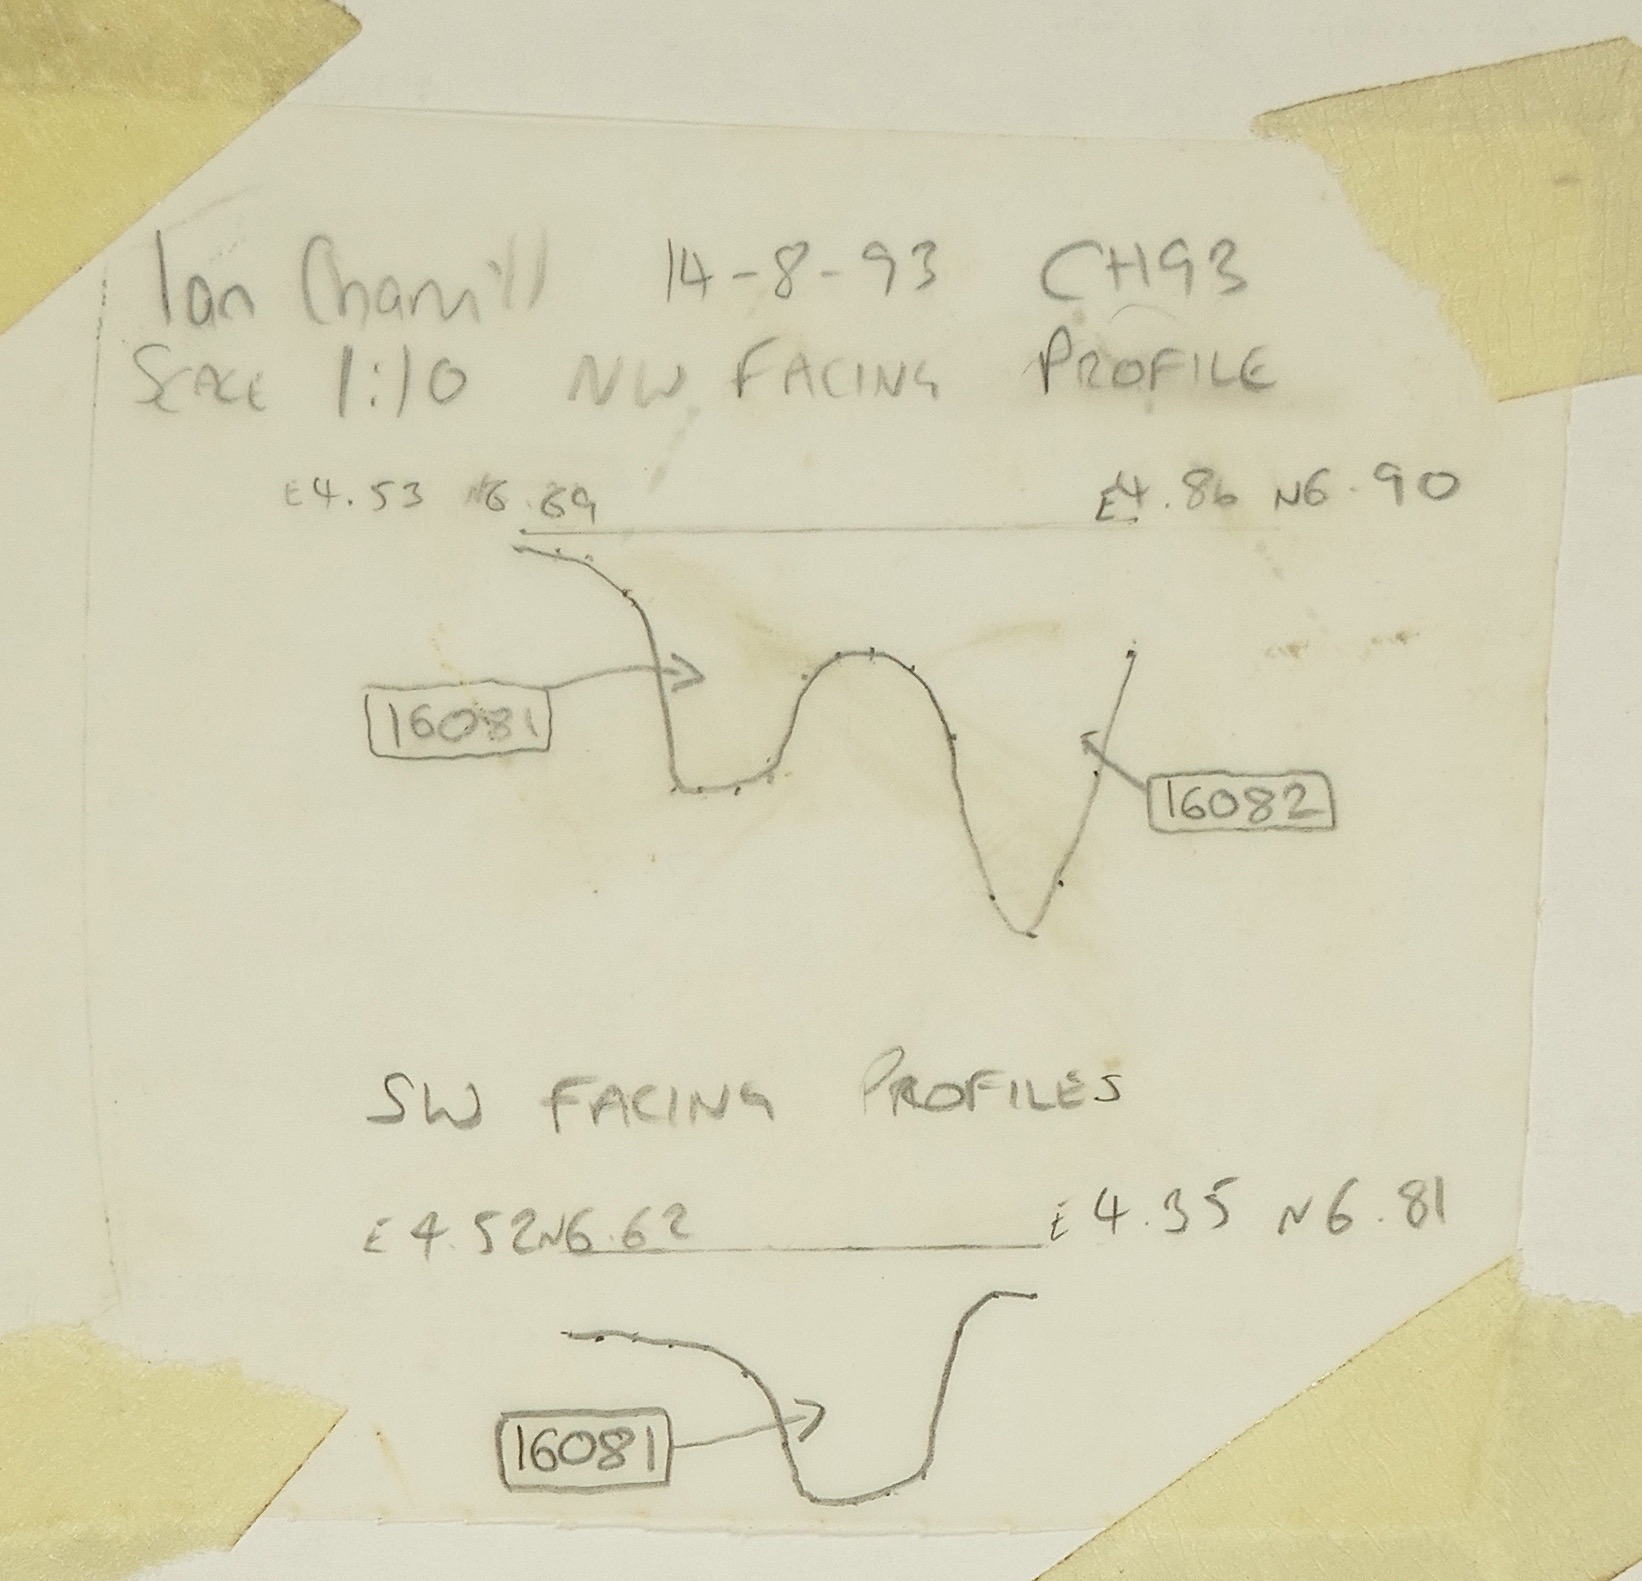 Ian 14-8-93 CH93
SCALE 1:10 NW FACING PROFILE
E4.53 N6.69 E4.86 N6.90
16081
16082
SW FACING PROFILES
E4.52 N6.62 E4.35 N6.81
16081